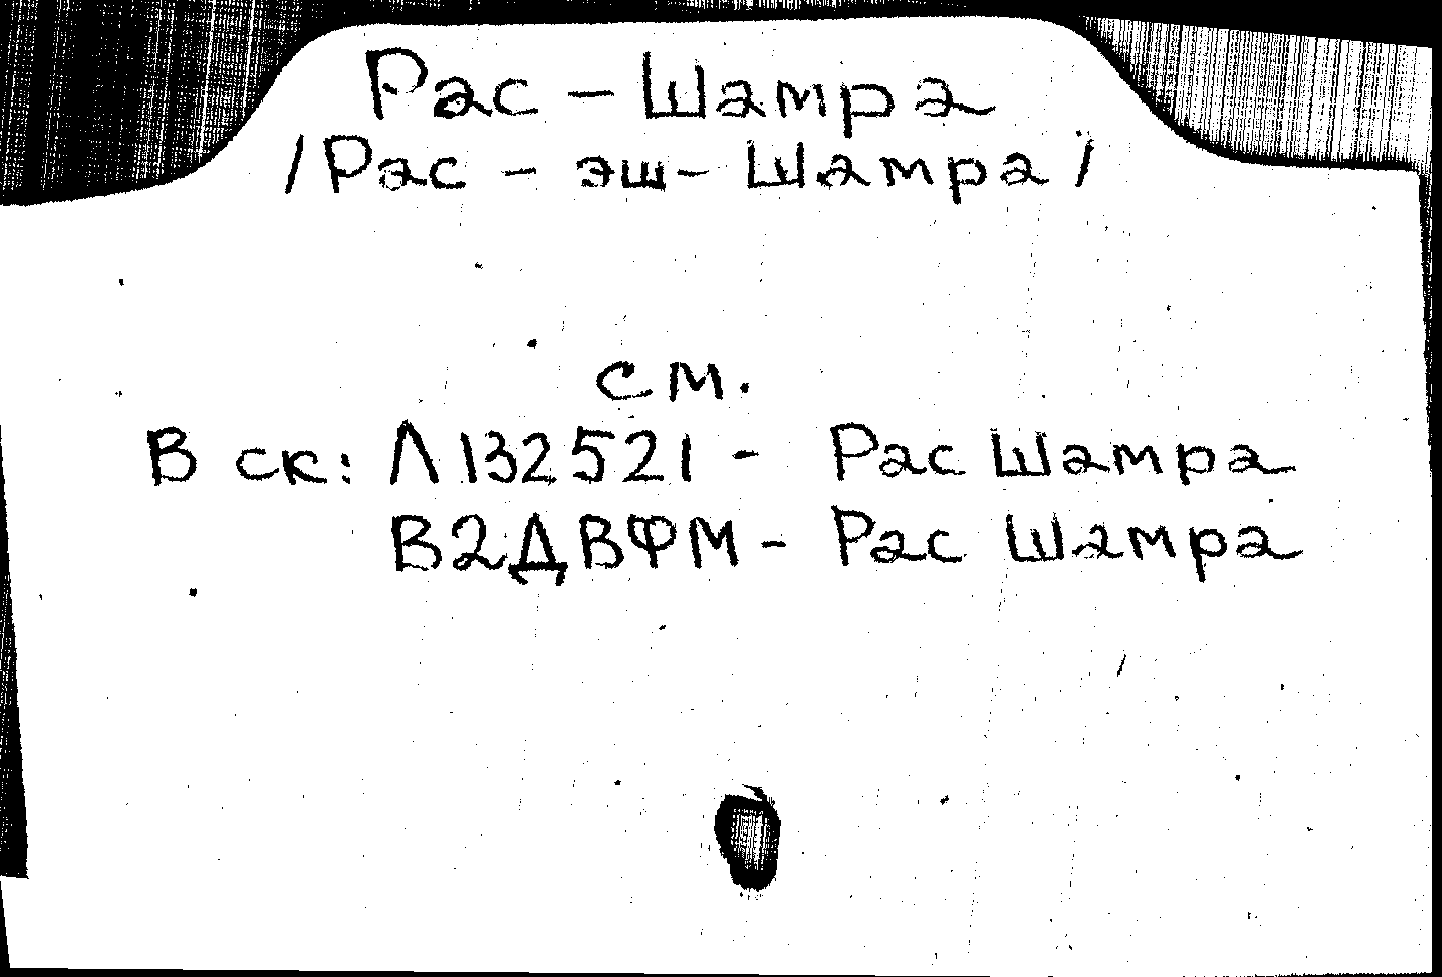 Рас - Шамра
/Рас - эш - Шамра/
см.
В ск: Л132521 - Рас Шамра
В2ДВФМ - Рас Шамра